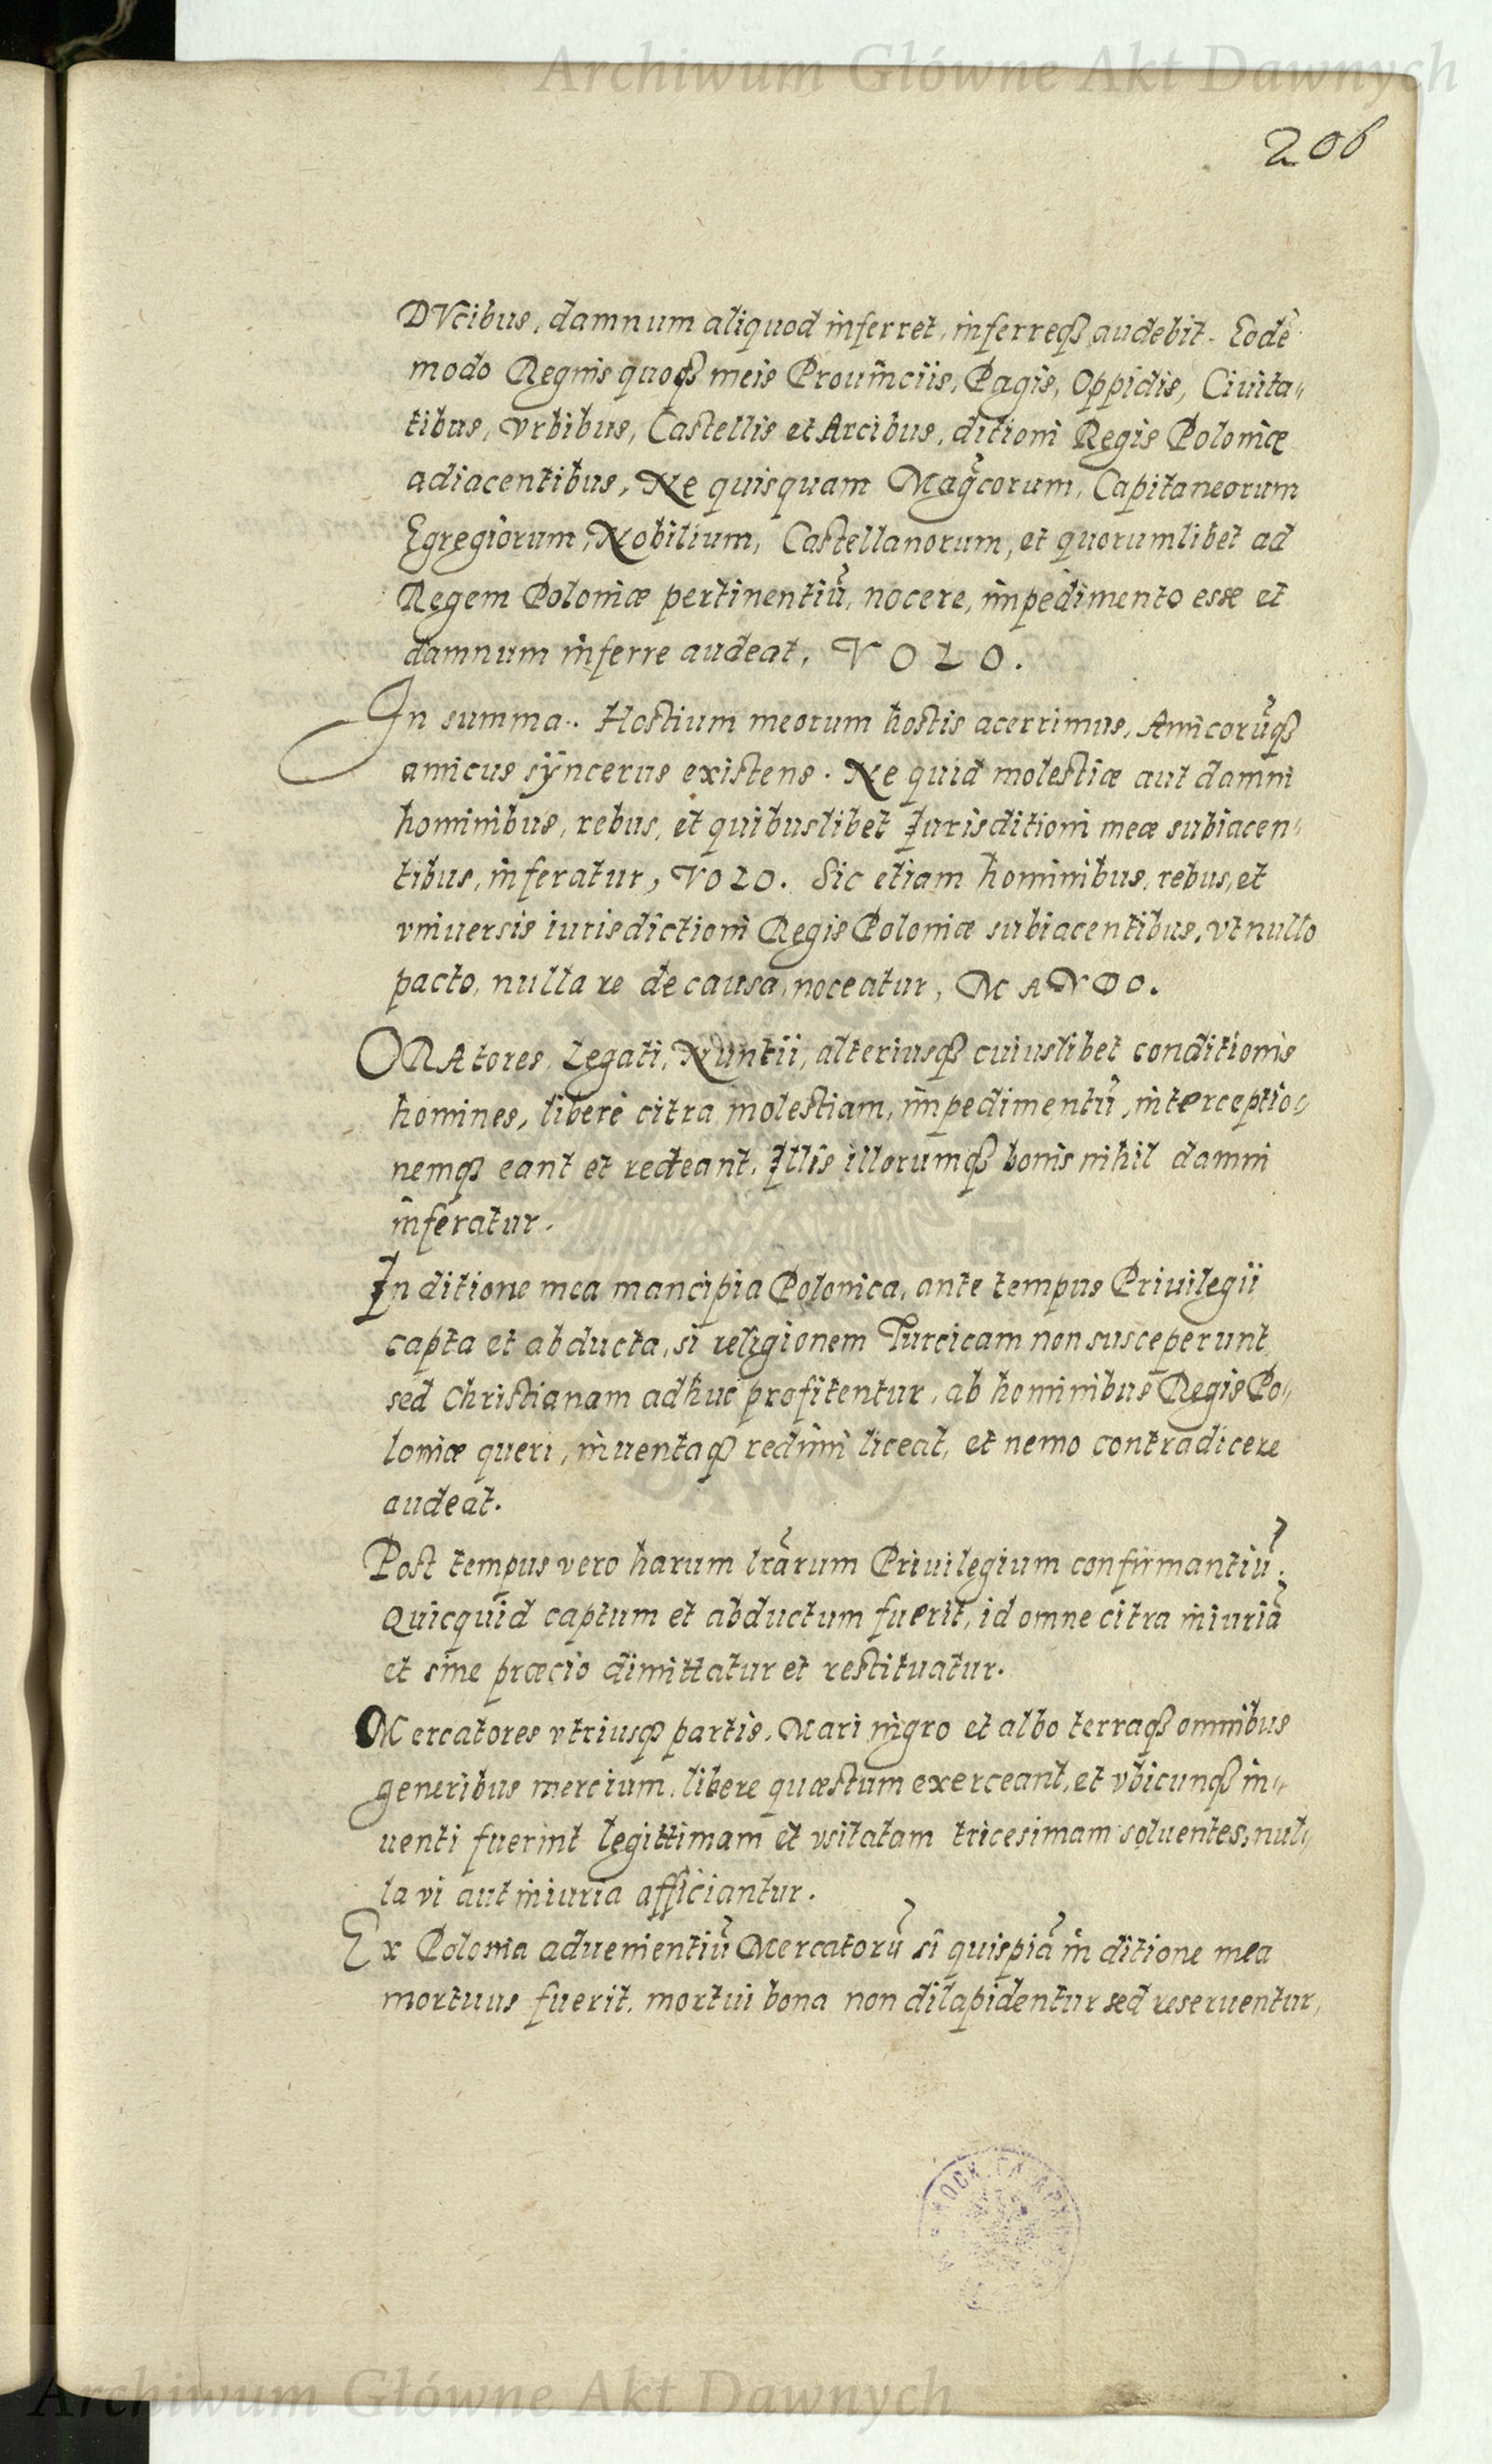 Archiwum Główne Akt Dawnych
206
DVcibus, damnum aliquod inferret, inferreqȝ audebit. Eodē
modo Regnis quoqȝ meis Prouinciis, Pagis, Oppidis, Ciuita„
tibus, vrbibus, Castellis et Arcibus, ditioni Regis Poloniæ
adiacentibus, Ne quisquam Mag̃corum, Capitaneorum
Egregiorum, Nobilium, Castellanorum, et quorumlibet ad
Regem Poloniæ pertinentiū, nocere, impedimento esse et
damnum inferre audeat, VOLO.
In summa. Hostium meorum hostis acerrimus, Amicorūqȝ
amicus sÿncerus existens. Ne quid molestiæ aut damni
hominibus, rebus, et quibuslibet Iurisditioni meæ subiacen„
tibus, inferatur, VOLO. Sic etiam hominibus, rebus, et
vniuersis iurisdictioni Regis Poloniæ subiacentibus, vt nullo
pacto, nulla re de causa, noceatur, MANDO.
ORAtores, Legati, Nuntii, alteriusqȝ cuiuslibet conditionis
homines, liberè citra molestiam, impedimentū, interceptio„
nemqȝ eant et redeant. Illis illorumqȝ bonis nihil damni
inferatur.
In ditione mea mancipia Polonica, ante tempus Priuilegii
capta et abducta, si religionem Turcicam non susceperunt,
sed Christianam adhuc profitentur, ab hominibus Regis Po„
loniæ queri, inuentaqȝ redimi liceat, et nemo contradicere
audeat.
Post tempus vero harum lrārum Priuilegium confirmantiū.
Quicquid captum et abductum fuerit, id omne citra iniuriā
et sine præcio dimittatur et restituatur.
Mercatores vtriusqȝ partis, Mari nigro et albo terraqȝ omnibus
generibus mercium, libere quæstum exerceant, et vbicunqȝ in„
uenti fuerint legittimam et vsitatam tricesimam soluentes, nul„
la vi aut iniuria afficiantur.
Ex Polonia aduenientiū Mercatorū si quispiā in ditione mea
mortuus fuerit, mortui bona non dilapidentur sed reseruentur,
Archiwum Główne Akt Dawnych